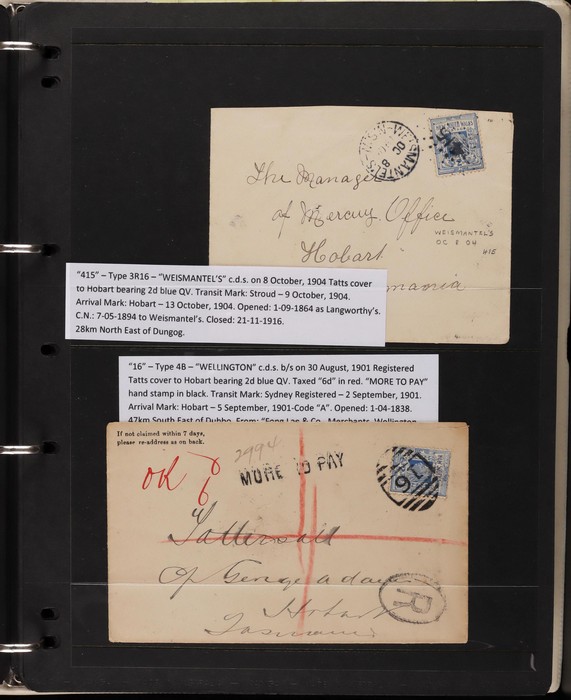 WEISMANTEL'S N.S.W
OC
8
The Manager
of Mercury Office
Hobart
mania
WEISMANTEL'S
OC 8 04
H1E
"415" – Type 3R16 – "WEISMANTEL'S" c.d.s. on 8 October, 1904 Tatts cover
to Hobart bearing 2d blue QV. Transit Mark: Stroud – 9 October, 1904.
Arrival Mark: Hobart – 13 October, 1904. Opened: 1-09-1864 as Langworthy's.
C.N.: 7-05-1894 to Weismantel's. Closed: 21-11-1916.
28km North East of Dungog.
"16" – Type 4B – "WELLINGTON" c.d.s. b/s on 30 August, 1901 Registered
Tatts cover to Hobart bearing 2d blue QV. Taxed "6d" in red. "MORE TO PAY"
hand stamp in black. Transit Mark: Sydney Registered – 2 September, 1901.
Arrival Mark: Hobart – 5 September, 1901-Code "A". Opened: 1-04-1838.
47km South East of Dubbo. From: "Fong Lee & Co., Merchants, Wellington
If not claimed within 7 days,
please re-address as on back.
2994
MORE TO PAY
OK
6
16
Tattersall
C/o George Adams
Hobart
Tasmania
R